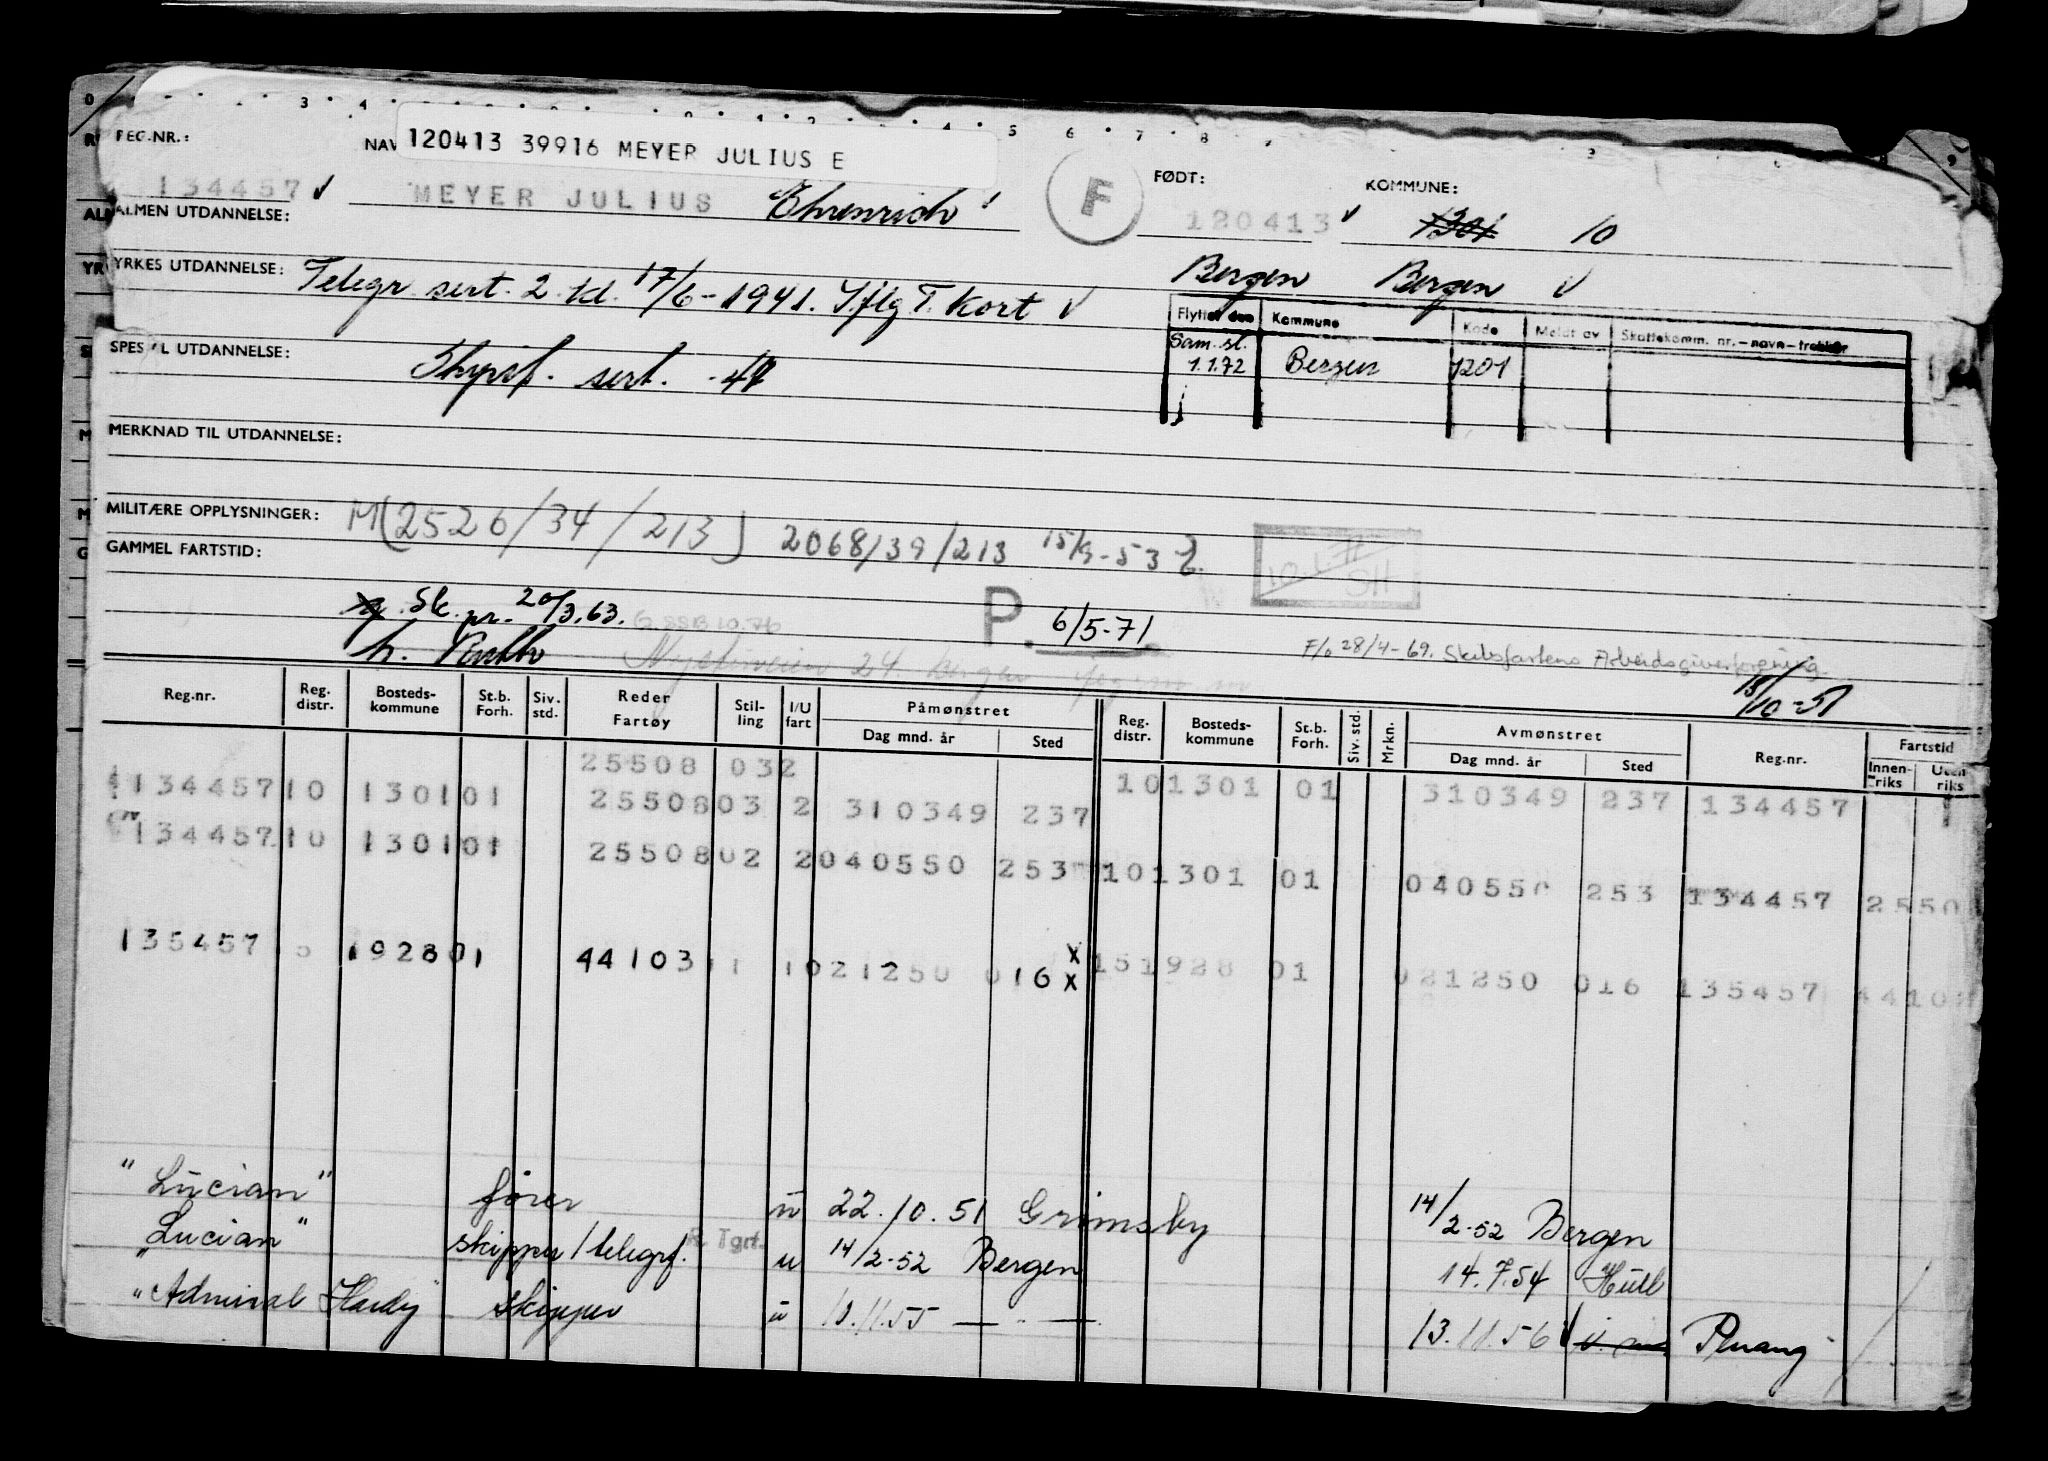 REG.NR.:
120413 39916 MEYER JULIUS E
FØDT:
KOMMUNE:
134457 MEYER JULIUS Ehrenrich F 120413 1301 10
ALMEN UTDANNELSE:
Bergen Bergen
YRKES UTDANNELSE: Telegr. sert. 2. kl. 17/6-1941. I.flg T. Kort
Flyttet den Kommune Kode Meldt av Skattekomm. nr.-navn-trekkår
Sam.sl. 1.1.72 Bergen 1201
UTDANNELSE: sert.
MERKNAD TIL UTDANNELSE:
MILITÆRE OPPLYSNINGER: M(2526/34/213) 2068/39/213 15/9-53
GAMMEL FARTSTID:
10.1.71 SH
Sk. pr. 20/3.63. P. 6/5-71
F/o 28/4-69. Skibsfartens Arbeidsgiverforening
Nystuveien 24. Bergen
15/10-51
Reg.nr. Reg. distr. Bosteds-kommune St.b. Forh. Siv. std. Reder Fartøy Stil-ling I/U fart Påmønstret Dag mnd. år Sted Reg. distr. Bosteds-kommune St.b. Forh. Siv. std. Mrkn. Avmønstret Dag mnd. år Sted Reg.nr. Fartstid Innen-riks Uten riks
25508 032
134457 10 1301 01 25508 03 2 310349 237 10 1301 01 310349 237 134457
134457 10 1301 01 25508 02 2 040550 253 10 1301 01 040550 253 134457 2550
135457 5 1928 01 44103 11 1 021250 016 X X 15 1928 01 021250 016 135457 4410
"Lucian" fører u 22.10.51 Grimsby 14/2-52 Bergen
"Lucian" skipper/telegrf. R. Tgrf. u 14/2-52 Bergen 14.7.54 Hull
"Admiral Hardy" skipper u 10.11.55 — " — 13.11.56 Pluang